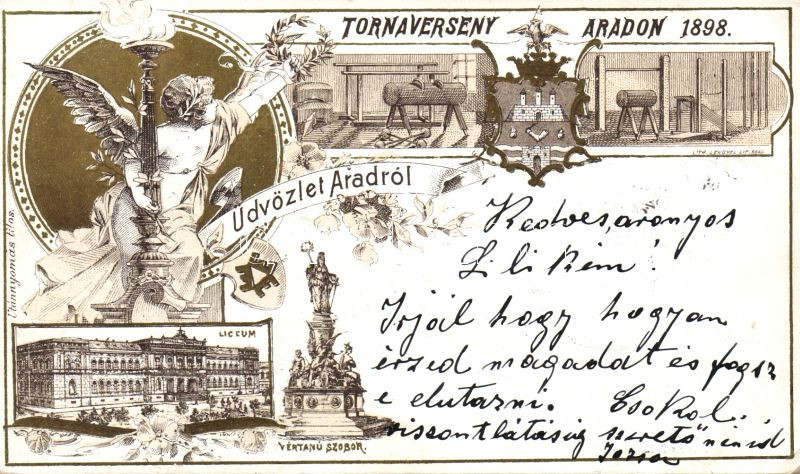 TORNAVERSENY ARADON 1898.
LITH. LENGYEL LIP. ARAD
Üdvözlet Aradról
Utánnyomás tilos.
LICEUM
VÉRTANÚ SZOBOR.
Kedves, aranyos
Lili kém!
Irjál hogy hogyan
érzed magadat és fogsz
e elutazni. Csokol
viszontlátásig szerető nénéd